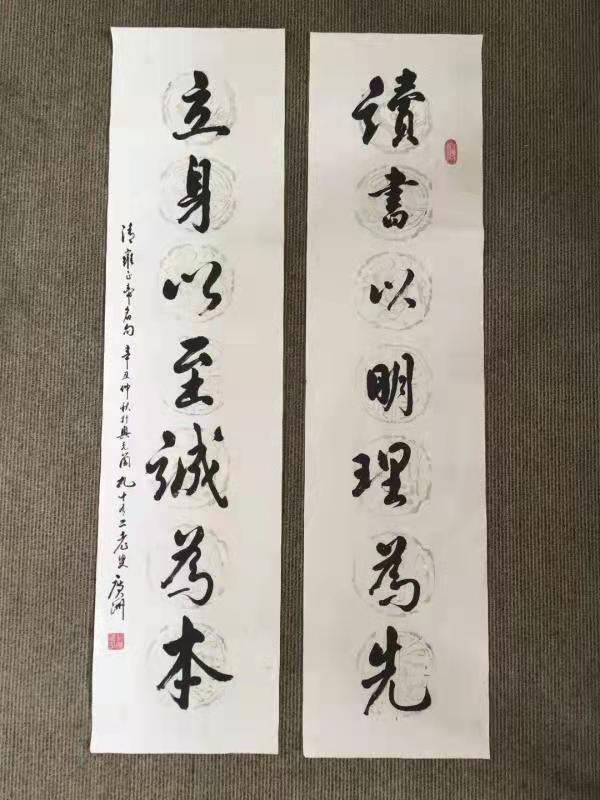 讀書以明理為先
立身以至誠為本
清雍正帝名句 辛丑仲秋於興元閣 九十有二老叟 廣洲